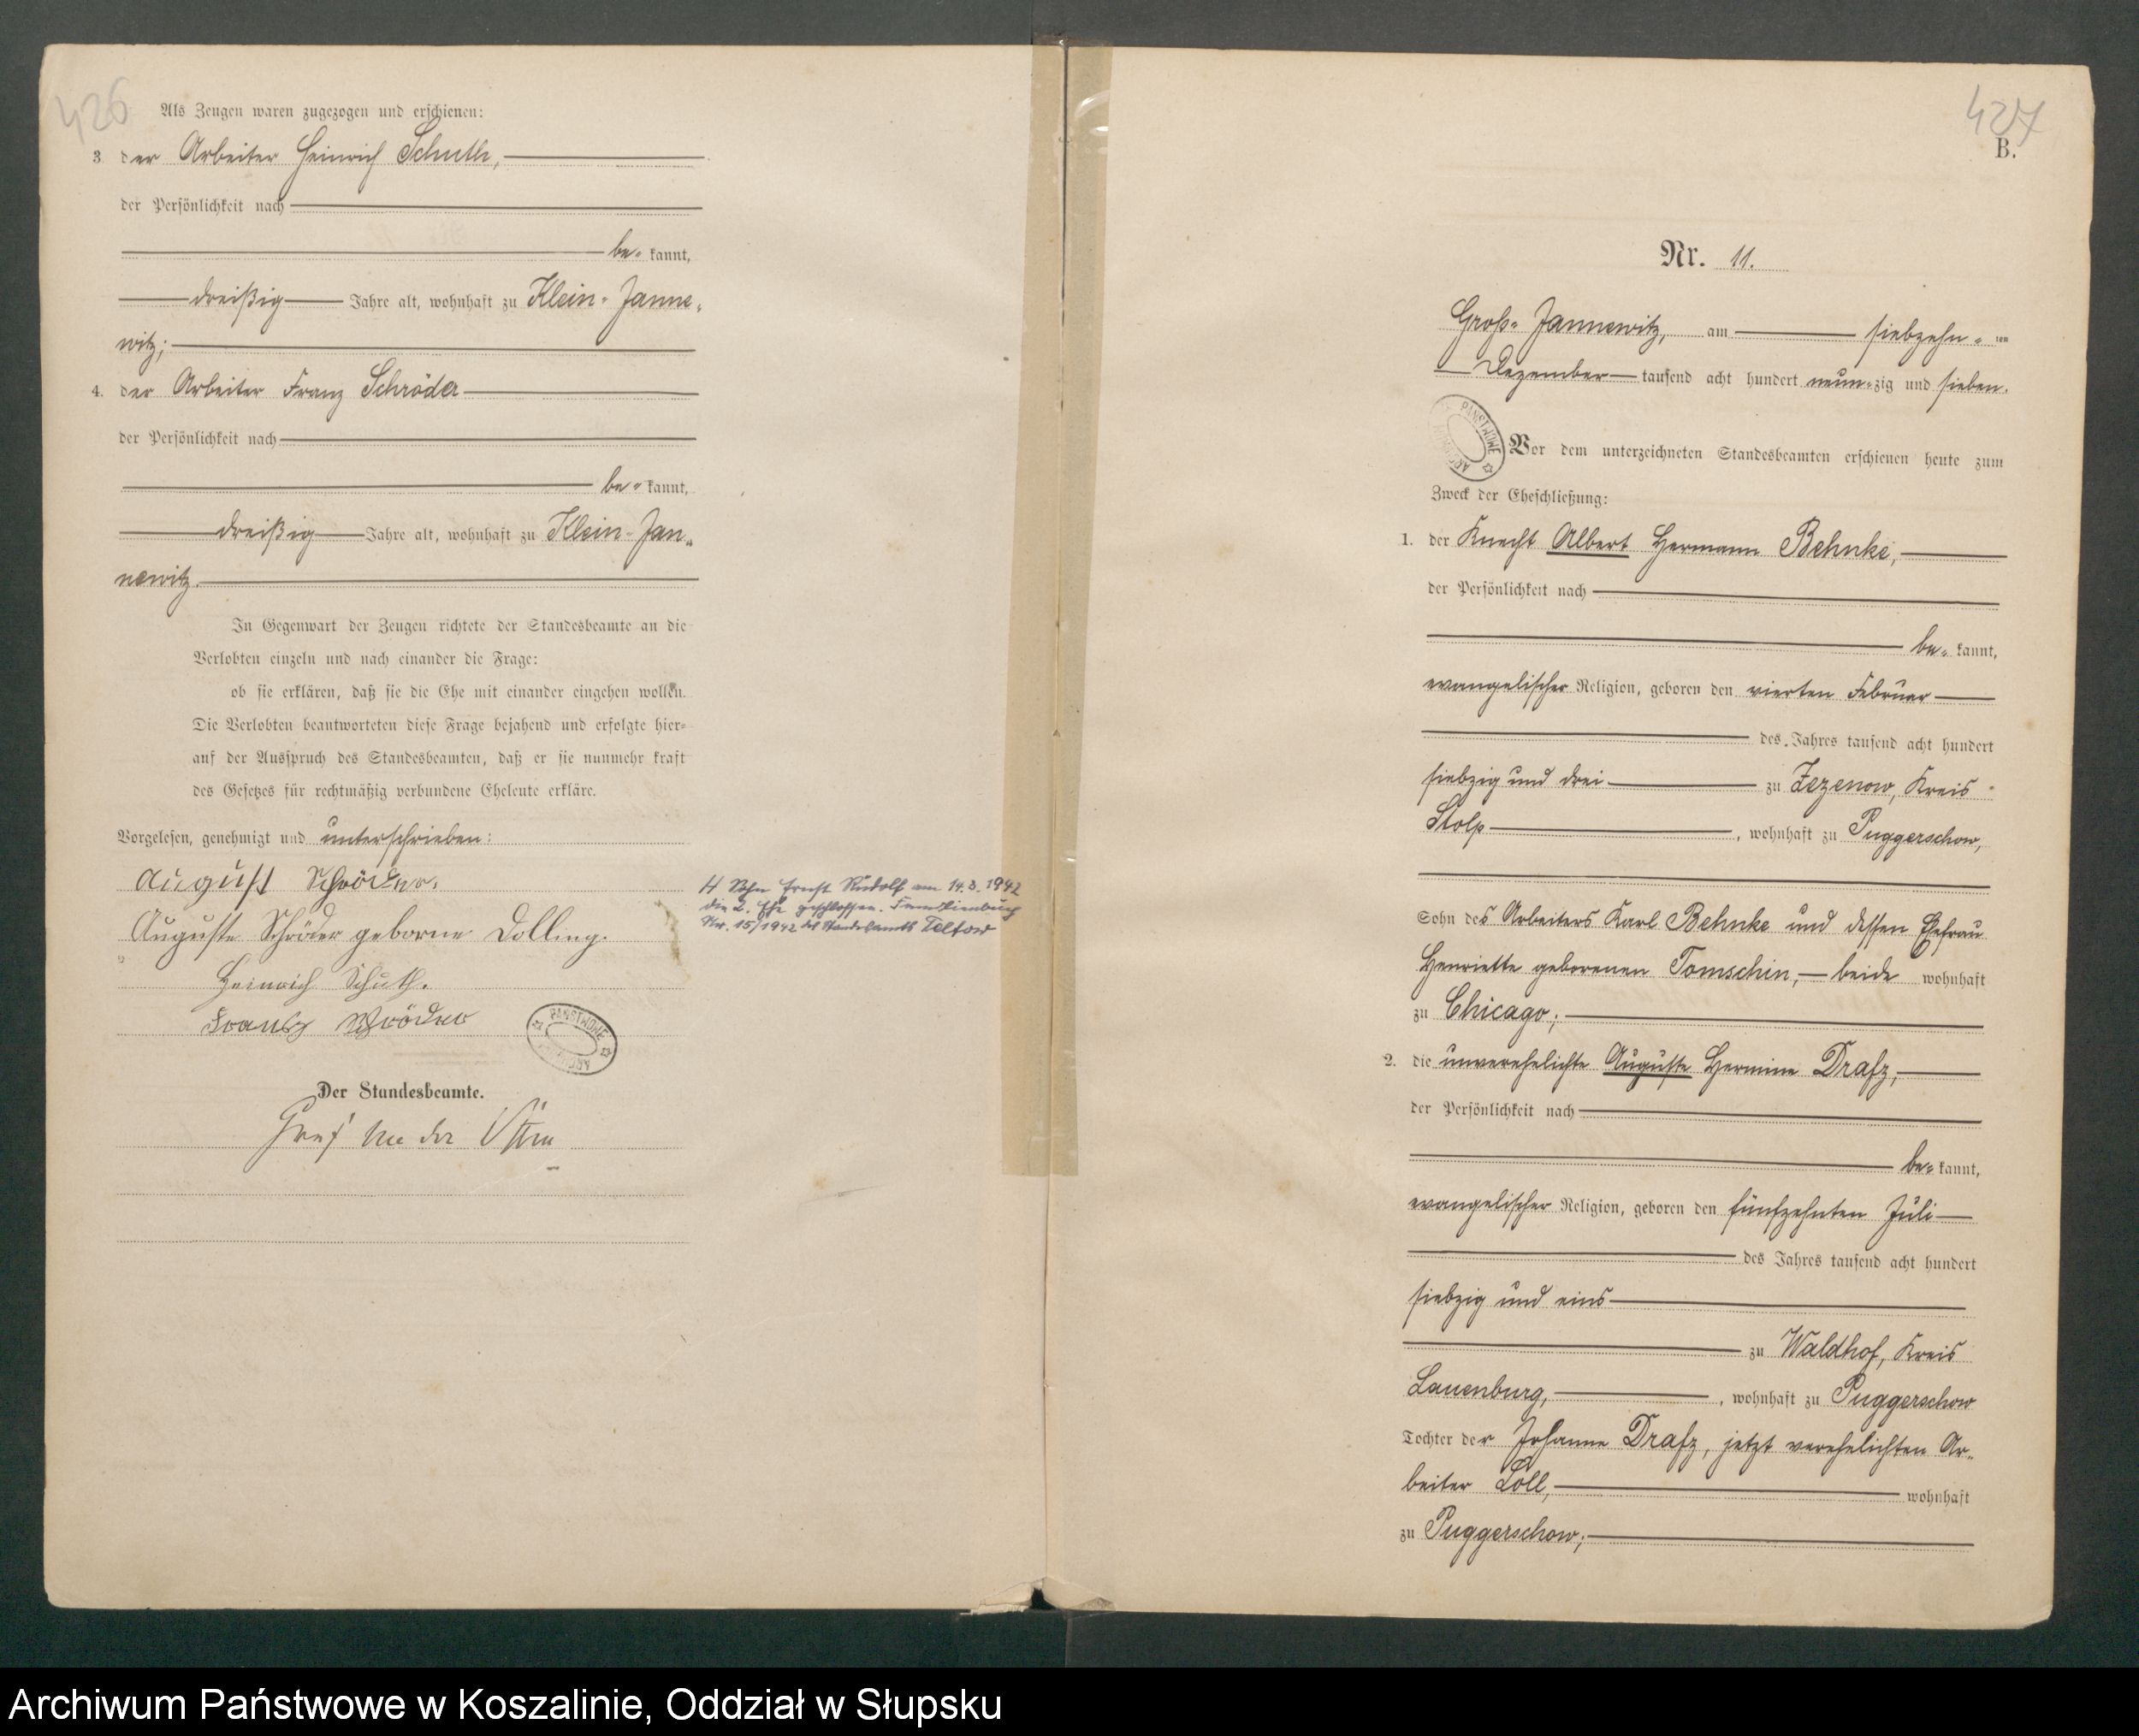 426
Als Zeugen waren zugezogen und erschienen:
3. der Arbeiter Heinrich Schuth,
der Persönlichkeit nach
be= kannt,
dreißig Jahre alt, wohnhaft zu Klein-Janne-
witz;
4. der Arbeiter Franz Schröder
der Persönlichkeit nach
be= kannt,
dreißig Jahre alt, wohnhaft zu Klein-Jan-
newitz.
In Gegenwart der Zeugen richtete der Standesbeamte an die
Verlobten einzeln und nach einander die Frage:
ob sie erklären, daß sie die Ehe mit einander eingehen wollen.
Die Verlobten beantworteten diese Frage bejahend und erfolgte hier-
auf der Ausspruch des Standesbeamten, daß er sie nunmehr kraft
des Gesetzes für rechtmäßig verbundene Eheleute erkläre.
Vorgelesen, genehmigt und unterschrieben:
August Schröder.
Auguste Schröder geborne Dolling.
Heinrich Schuth.
Franz Schröder
PAŃSTWOWE
Der Standesbeamte.
Graf von der Osten
Sohn Ernst Rudolf am 14.3.1942
die 2. Ehe geschlossen. Familienbuch
Nr. 15/1942 des Standesamts Teltow
427
B.
Nr. 11.
Groß-Jannewitz, am siebzehn- ten
Dezember tausend acht hundert neun-zig und sieben.
PAŃSTWOWE
Vor dem unterzeichneten Standesbeamten erschienen heute zum
Zweck der Eheschließung:
1. der Knecht Albert Hermann Behnke,
der Persönlichkeit nach
be= kannt,
evangelischer Religion, geboren den vierten Februar
des Jahres tausend acht hundert
siebzig und drei zu Zezenow, Kreis
Stolp, wohnhaft zu Puggerschow,
Sohn des Arbeiters Karl Behnke und dessen Ehefrau
Henriette geborenen Tomschin, beide wohnhaft
zu Chicago;
2. die unverehelichte Auguste Hermine Drafz,
der Persönlichkeit nach
be= kannt,
evangelischer Religion, geboren den fünfzehnten Juli
des Jahres tausend acht hundert
siebzig und eins
zu Waldhof, Kreis
Lauenburg, wohnhaft zu Puggerschow
Tochter der Johanne Drafz, jetzt verehelichten Ar-
beiter Loll, wohnhaft
zu Puggerschow;
Archiwum Państwowe w Koszalinie, Oddział w Słupsku